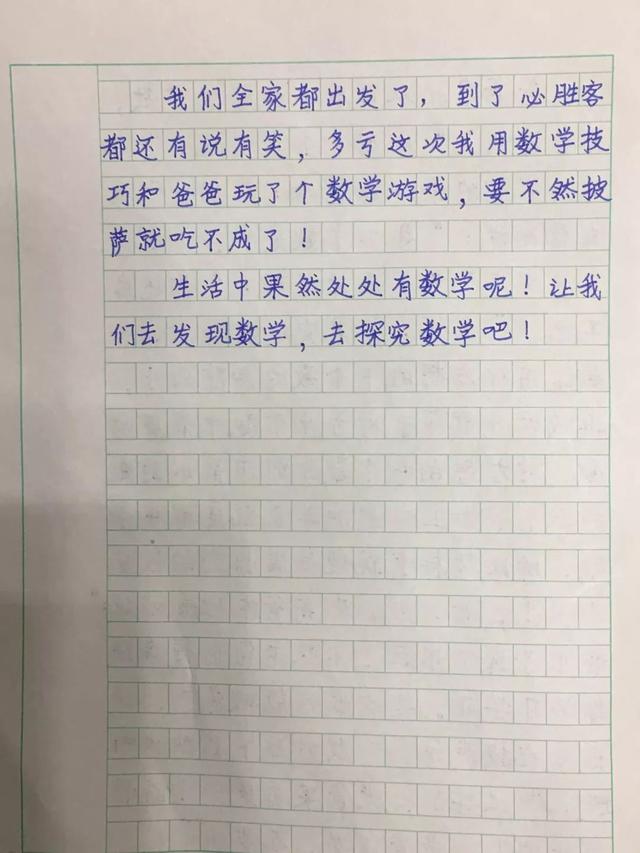 我们全家都出发了，到了必胜客
都还有说有笑，多亏这次我用数学技
巧和爸爸玩了个数学游戏，要不然披
萨就吃不成了！
生活中果然处处有数学呢！让我
们去发现数学，去探究数学吧！